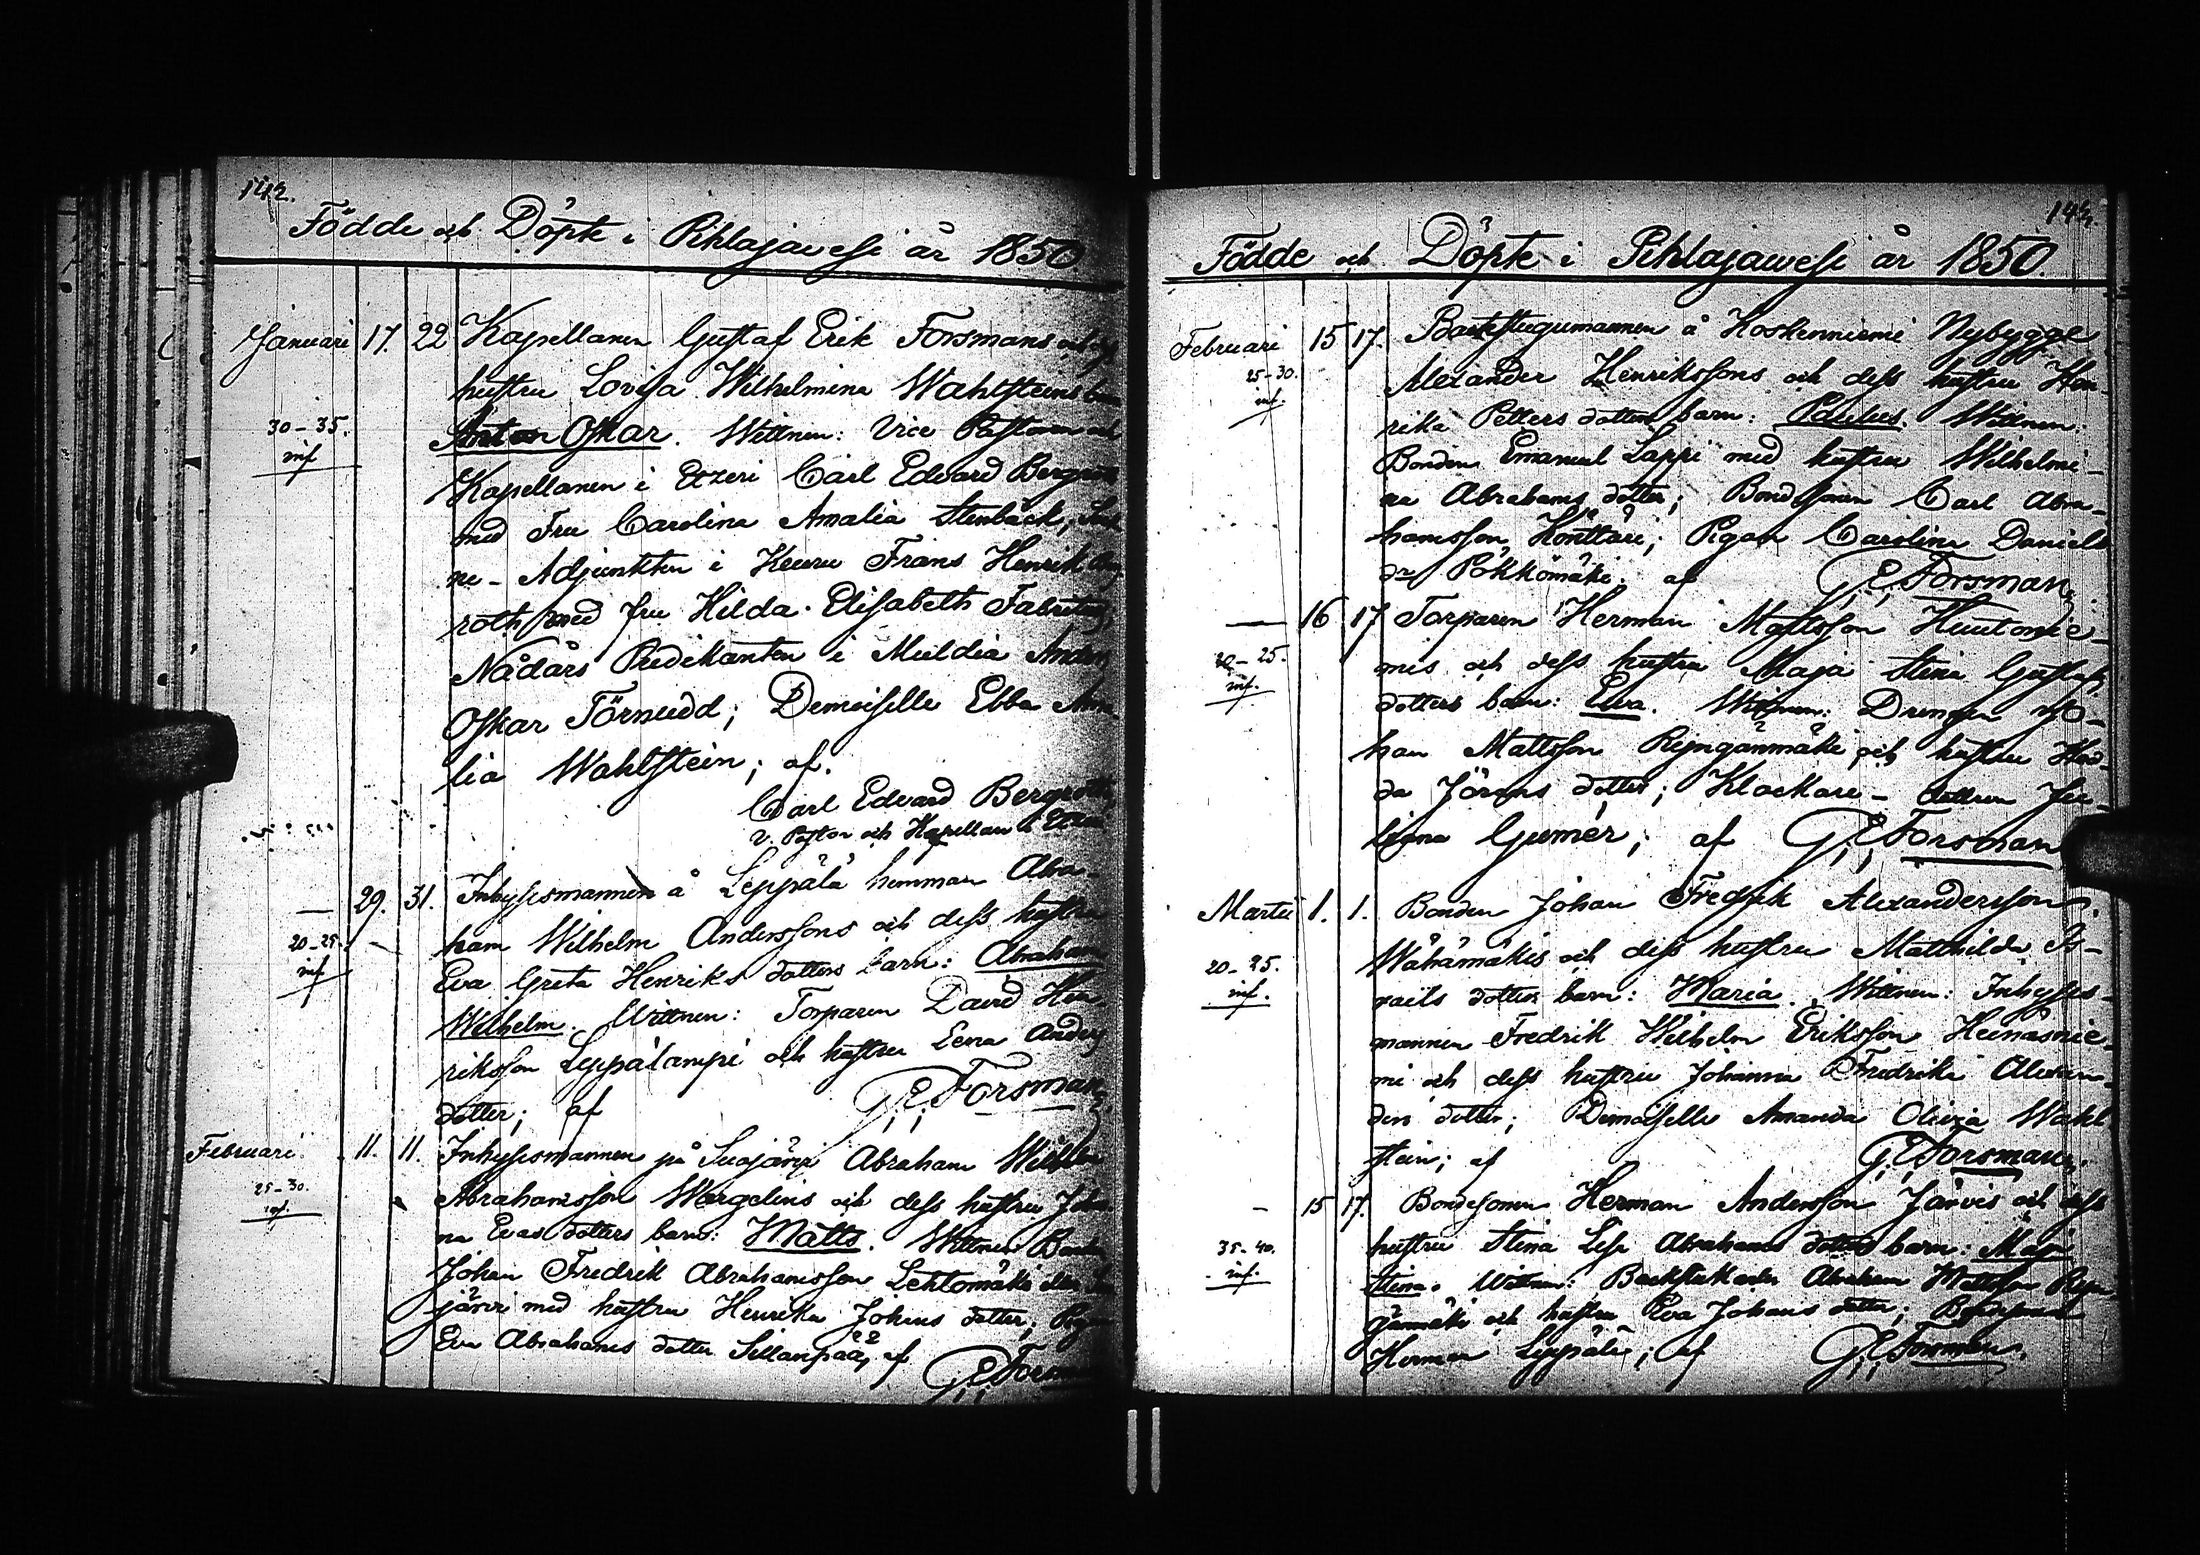 142.
Födde och Döpte i Pihlajawesi år 1850.
Januari 17. 22 Kapellanen Gustaf Erik Forsmans och
hustru Lovisa Wilhelmina Wahlsteins barn
30-35. Anton Oskar. Wittnen: Vice Pastoren och
inf. Kapellanen i Etzeri Carl Edvard Bergroth
med Fru Carolina Amalia Stenbäck;
ne-Adjunkten i Keuru Frans Henrik Berg
roth med fru Hilda Elisabeth Fabritius;
Nådårs Predikanten i Muldia Anders
Oskar Törnudd; Demoiselle Ebba Ama-
lia Wahlstein; af.
Carl Edvard Bergroth,
v. Pastor och Kapellan i Etzeri
— 29. 31. Inhysesmannen å Leppälä hemman Abra-
20-25. ham Wilhelm Anderssons och dess hustru
inf Eva Greta Henriks dotters barn: Abraham
Wilhelm. Wittnen: Torparen David Hen-
riksson Leppälampi och hustru Lena Anders
dotter; af G. E. Forsman.
Februari. 11. 11. Inhysesmannen på Suojärvi Abraham Wilhelm
25-30. Abrahamsson Wergelins och dess hustru Johan-
inf. na Evas dotters barn: Matts. Wittnen: Bonden
Johan Fredrik Abrahamsson Lehtomäki
järvi med hustru Henrika Johans dotter; Pigan
Eva Abrahams dotter Sillanpää, af
G. E. Forsman
143.
Födde och Döpte i Pihlajawesi år 1850.
Februari 15 17. Backstugumannen å Koskenniemi Nybygge
25-30. Alexander Henrikssons och dess hustru Hen-
inf. rika Petters dotters barn: Paulus. Wittnen:
Bonden Emanuel Lappi med hustru Wilhelmi-
na Abrahams dotter; Bondsonen Carl Abra-
hamsson Könttäri; Pigan Carolina Daniels
dr Pökkömäki. af G. E. Forsman.
— 16 17 Torparen Herman Mattsson Huutonie-
20-25. mis och dess hustru Maja Stina Gustafs
inf. dotters barn: Eva. Wittnen: Drengen Jo-
han Mattsson Ryngänmäki och hustru Hed-
da Jörans dotter; Klockare-dottren Ju-
liana Gumér; af G. E. Forsman
Martii 1. 1. Bonden Johan Fredrik Alexandersson
Wähämäkis och dess hustru Mathilda Is-
20-25. rails dotters barn: Maria. Wittnen: Inhyses-
inf. mannen Fredrik Wilhelm Eriksson Heinäsnie-
mi och dess hustru Johanna Fredrika Alexan-
ders dotter; Demoiselle Amanda Olivia Wahl
stein; af G. E. Forsman.
- 15 17. Bondesonen Herman Andersson Järvis och dess
35-40. hustru Stina Lisa Abrahams dotters barn: Maja
inf. Stina. Wittnen: Abraham Mattsson Ryn-
gänmäki och hustru Eva Johans dotter;
Herman Leppälä; af G. E. Forsman.